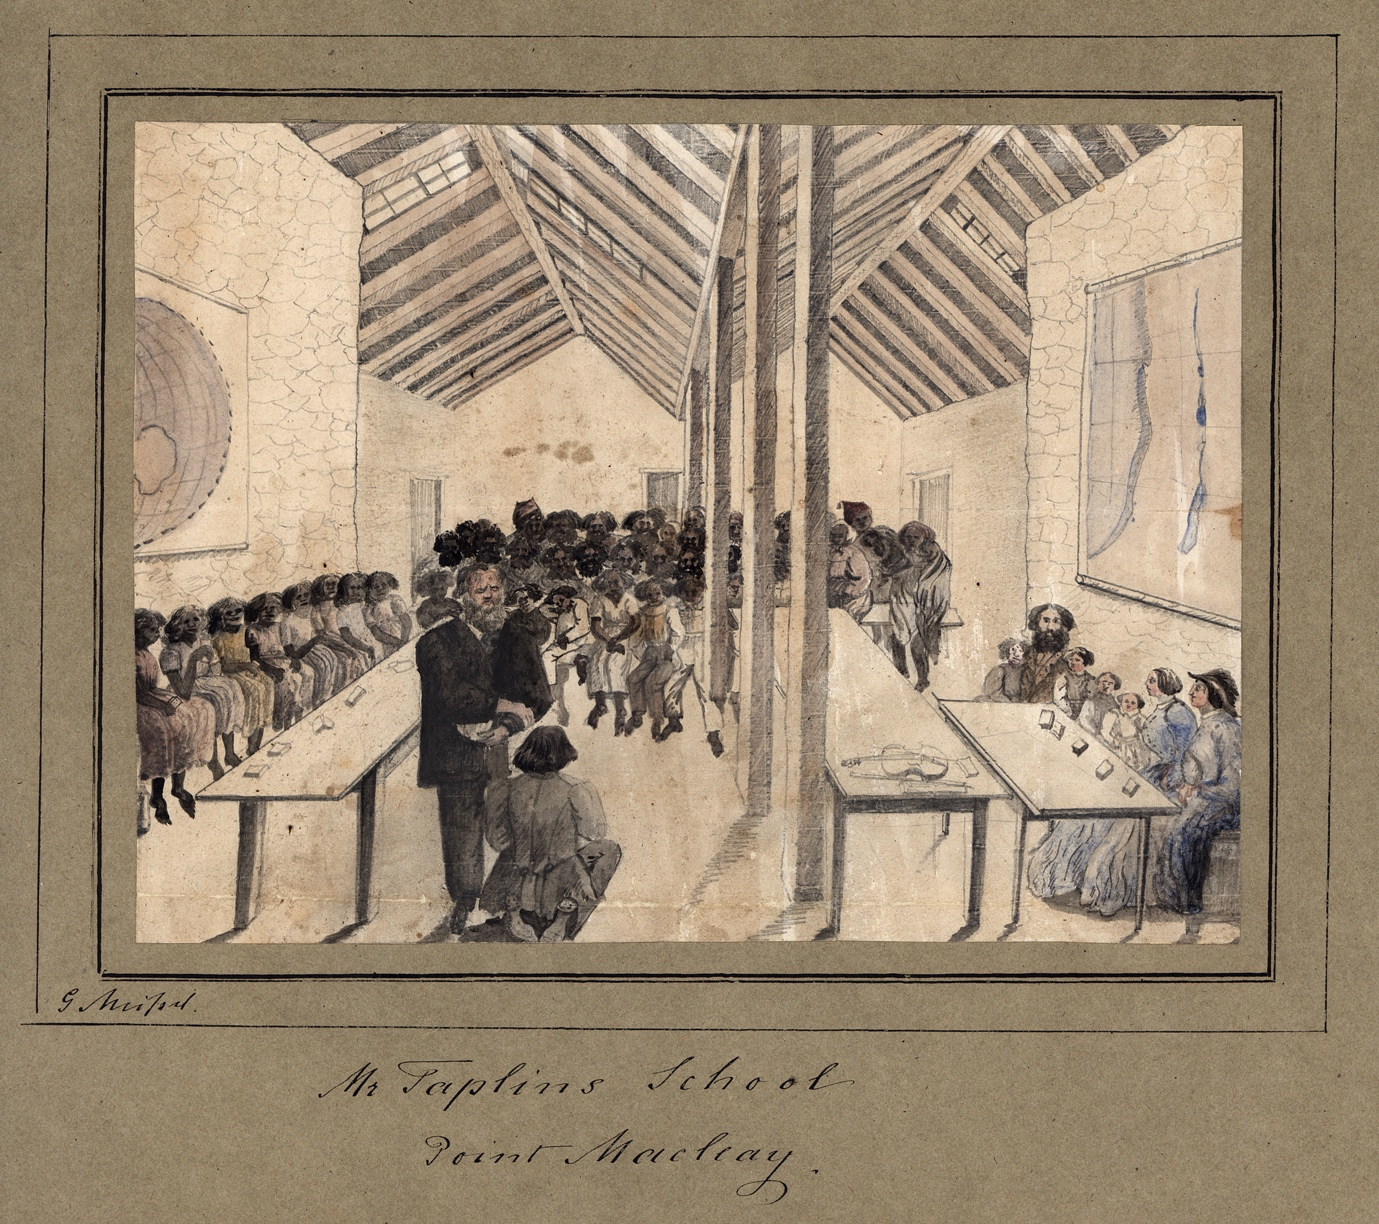 G Meissel.
Mr Taplins School
Point Macleay.